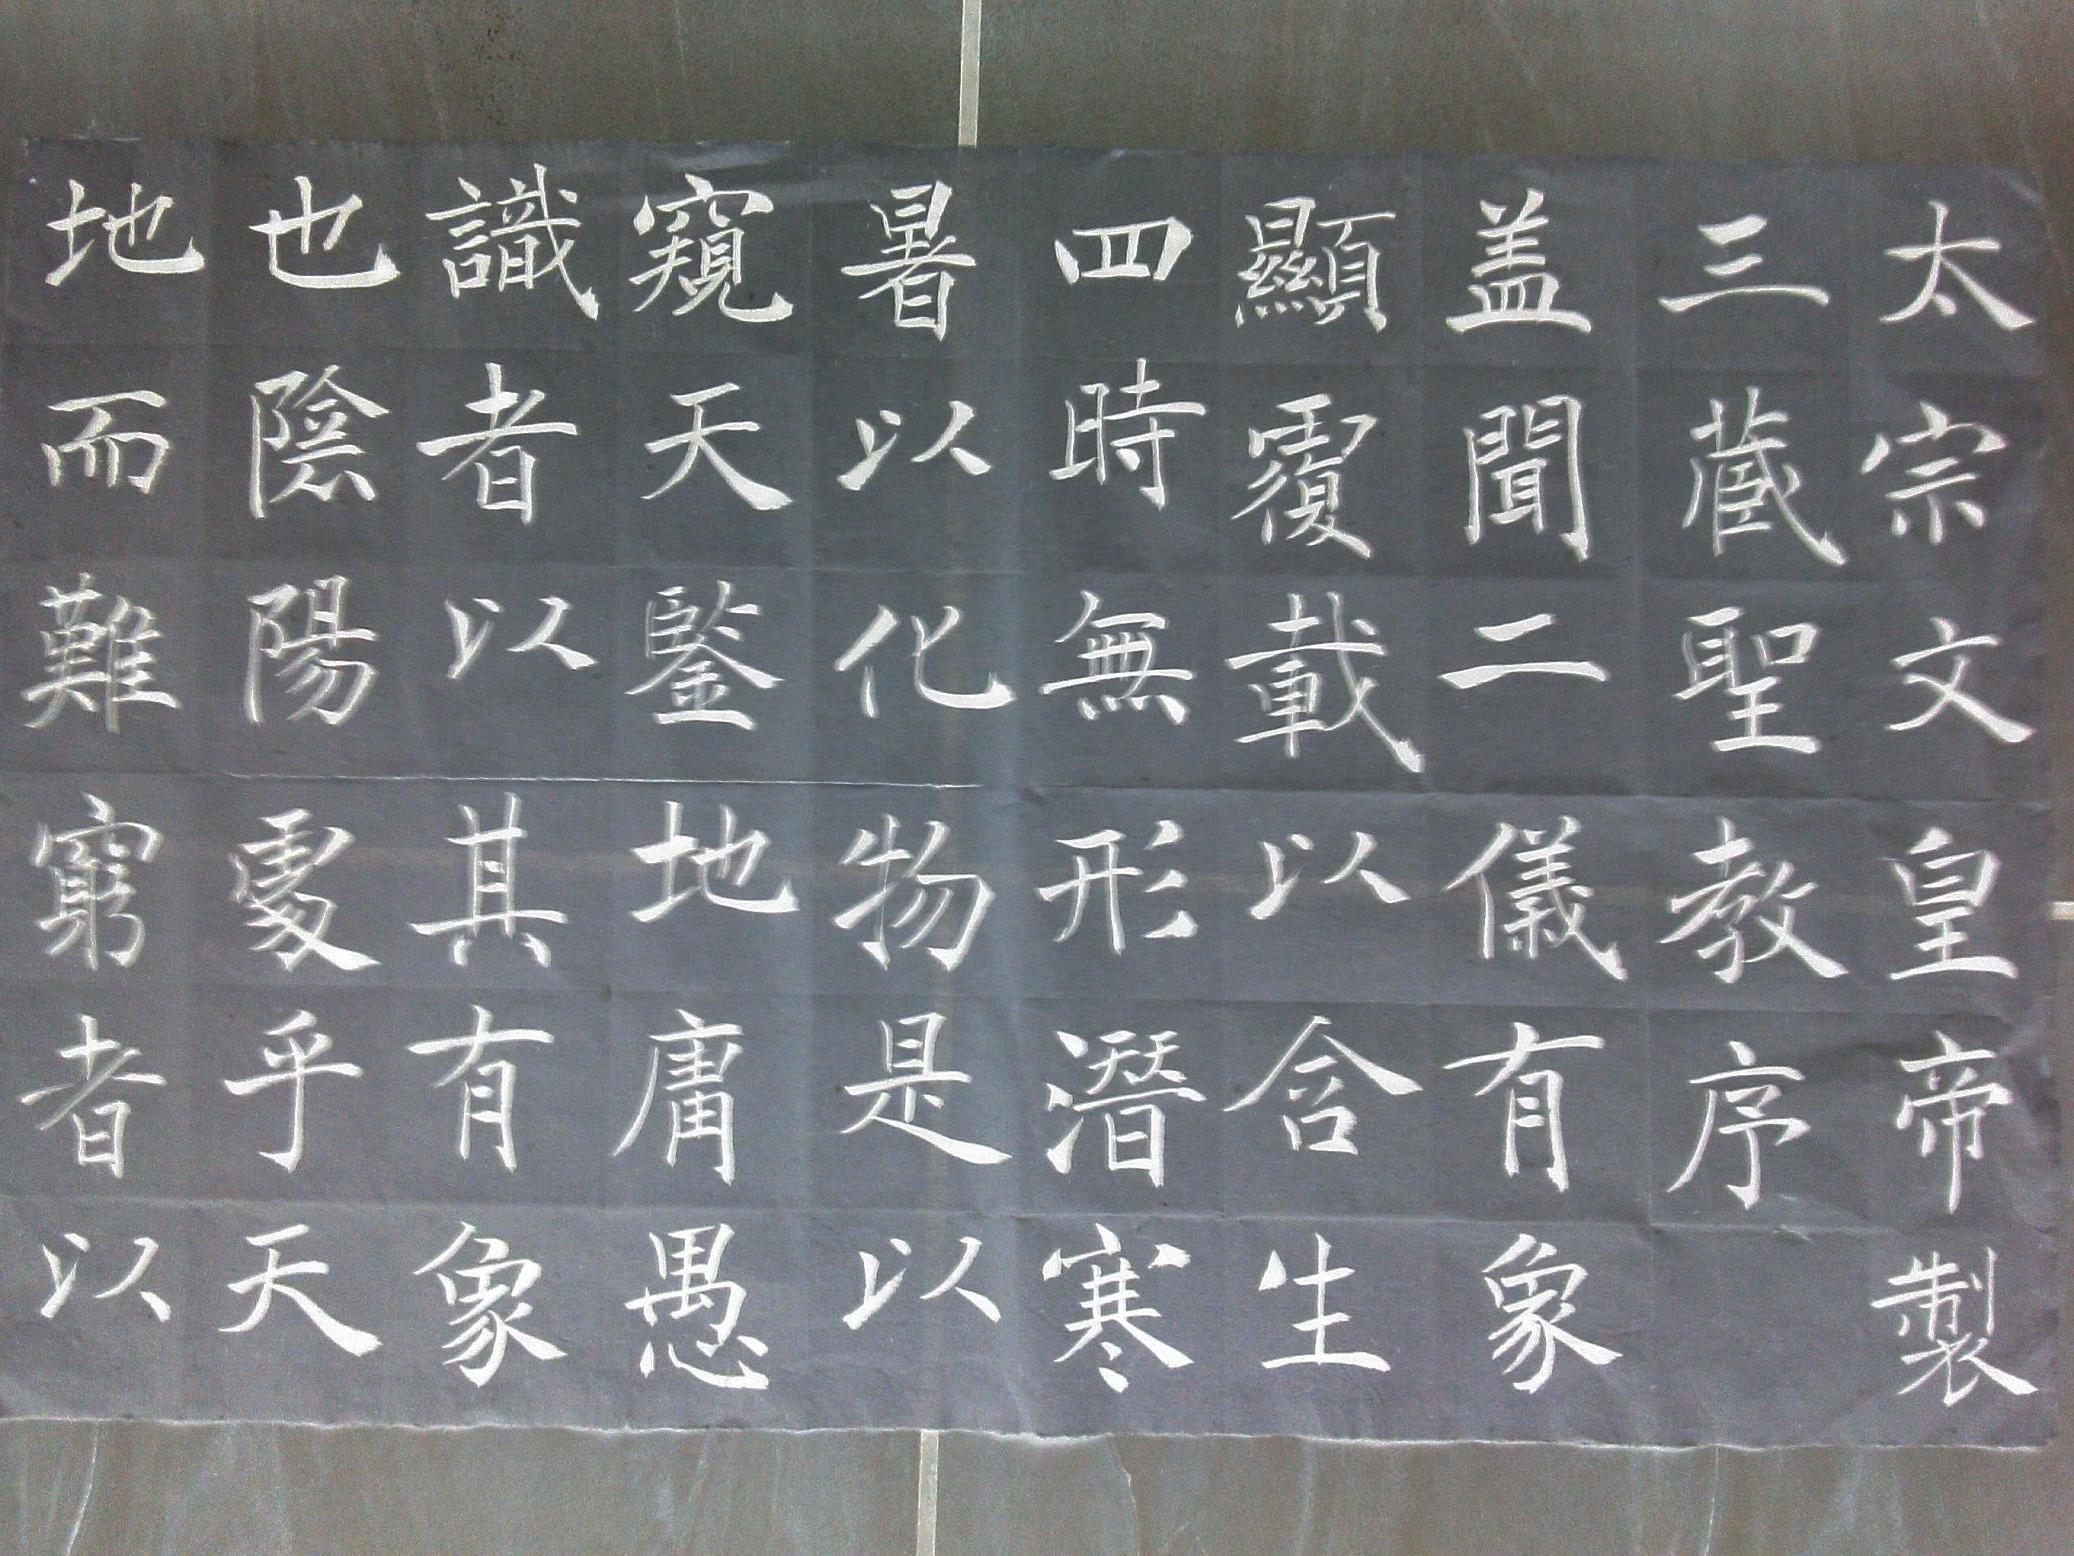 太宗文皇帝製
三藏聖教序
盖聞二儀有象
顯覆載以含生
四時無形潛寒
暑以化物是以
窺天鑒地庸愚
識者以其有象
也陰陽處乎天
地而難窮者以